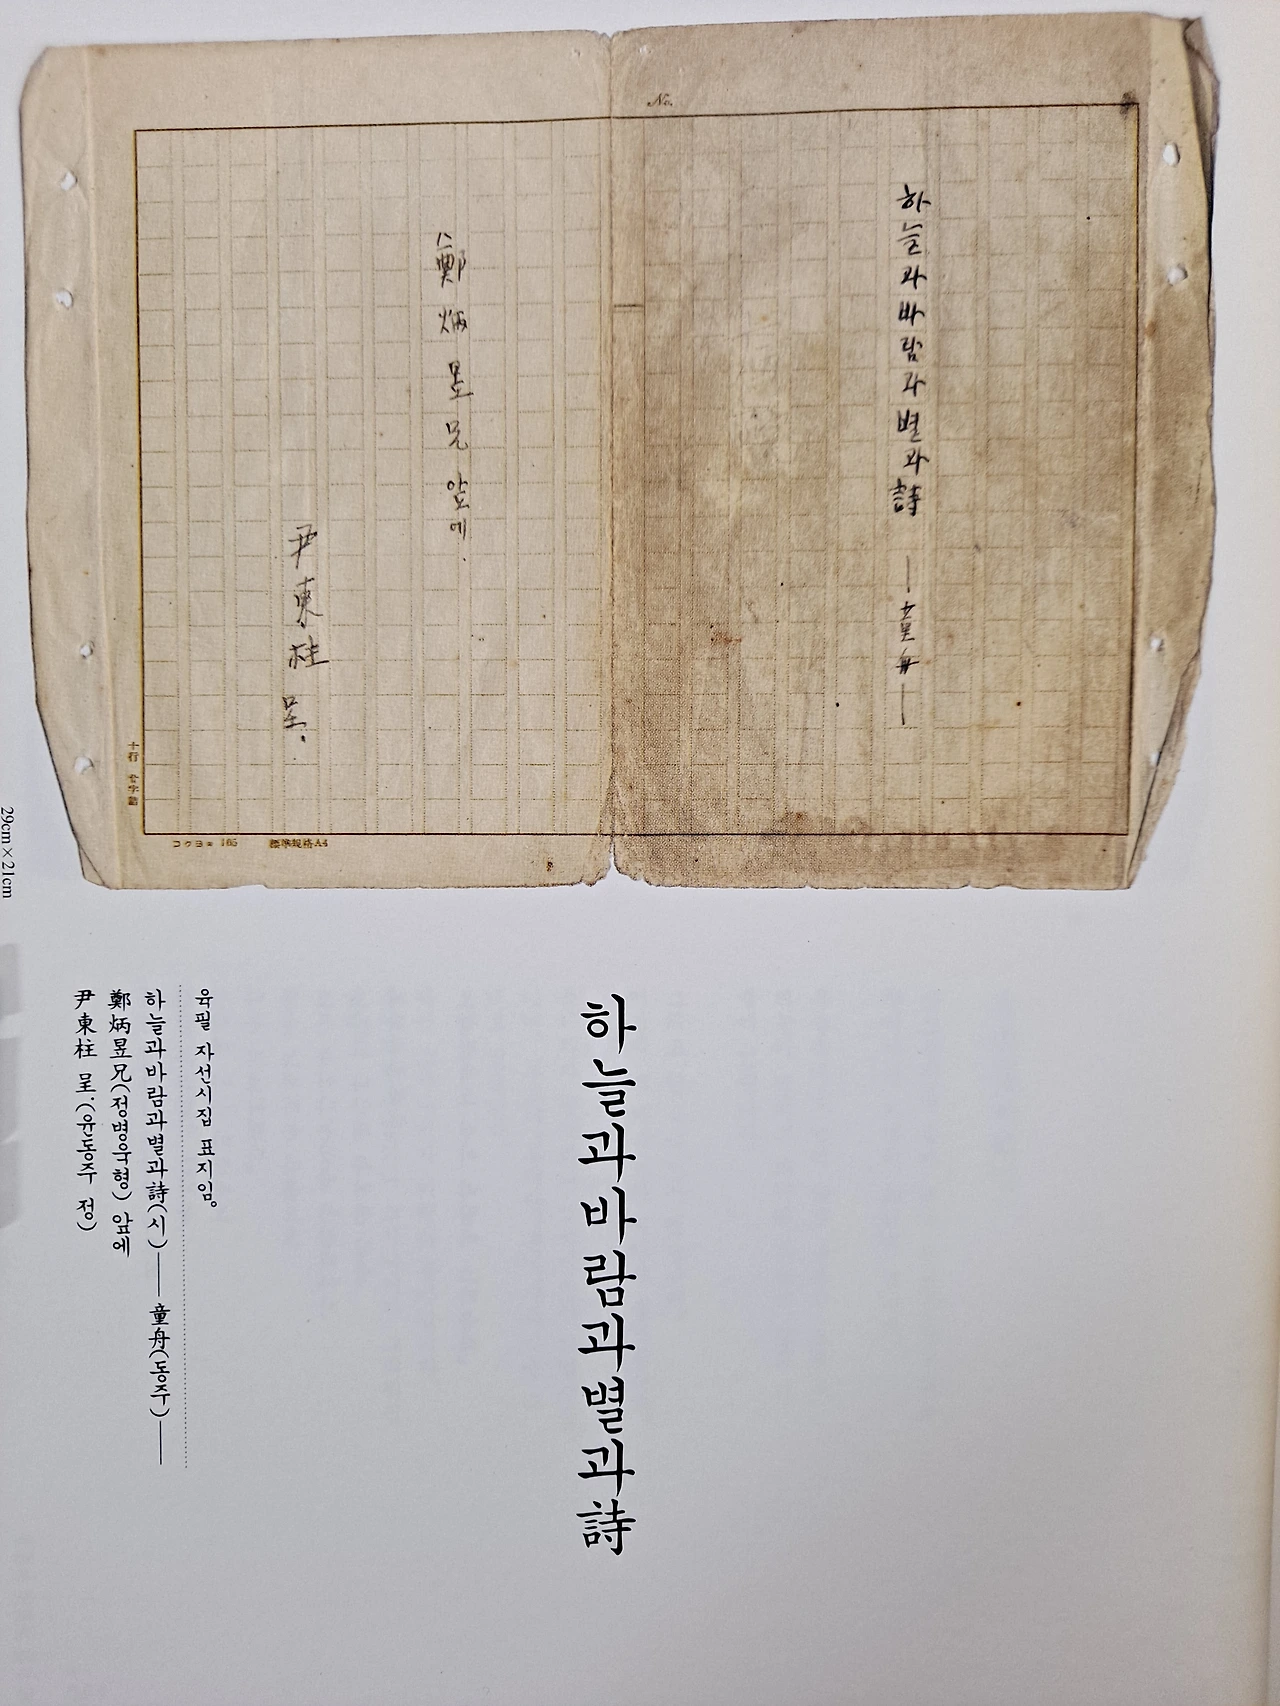 No.
하늘과바람과별과詩 — 童舟 —
鄭炳昱兄앞에.
尹東柱 呈.
十行 廿字詰
コクヨ 165 標準規格A4
29cm×21cm
하늘과바람과별과詩
육필 자선시집 표지임.
하늘과바람과별과詩(시) — 童舟(동주) —
鄭炳昱兄(정병욱형) 앞에
尹東柱 呈.(윤동주 정)